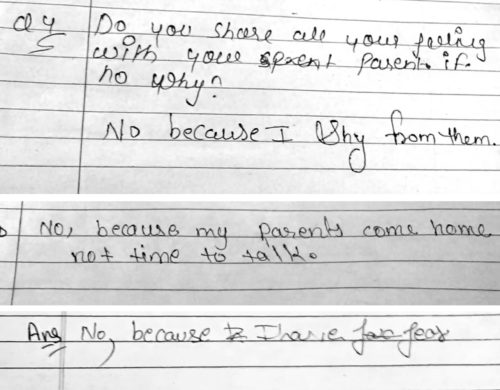 Q4 Do you share all your feeling
with your parent. if
no why?
No because I Shy from them.
No, because my parents come home
not time to talk.
Ans No, because I have fear